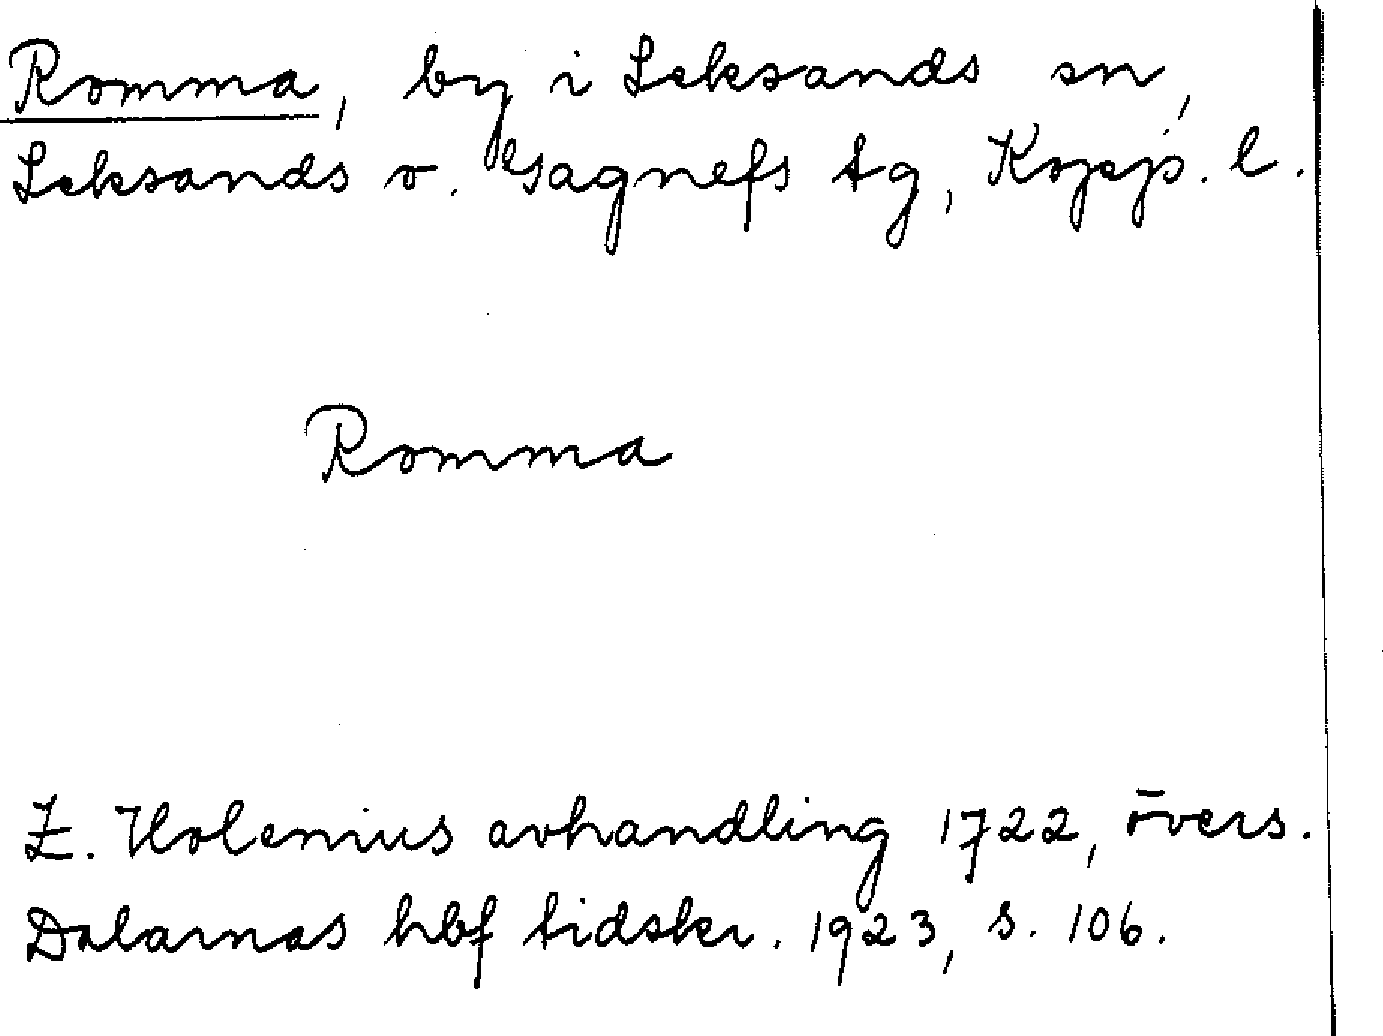 Romma, by i Leksands sn,
Leksands o. Gagnefs tg, Kopp. l.
Romma
Z. Holenius avhandling 1722, övers.
Dalarnas hbf tidskr. 1923, s. 106.